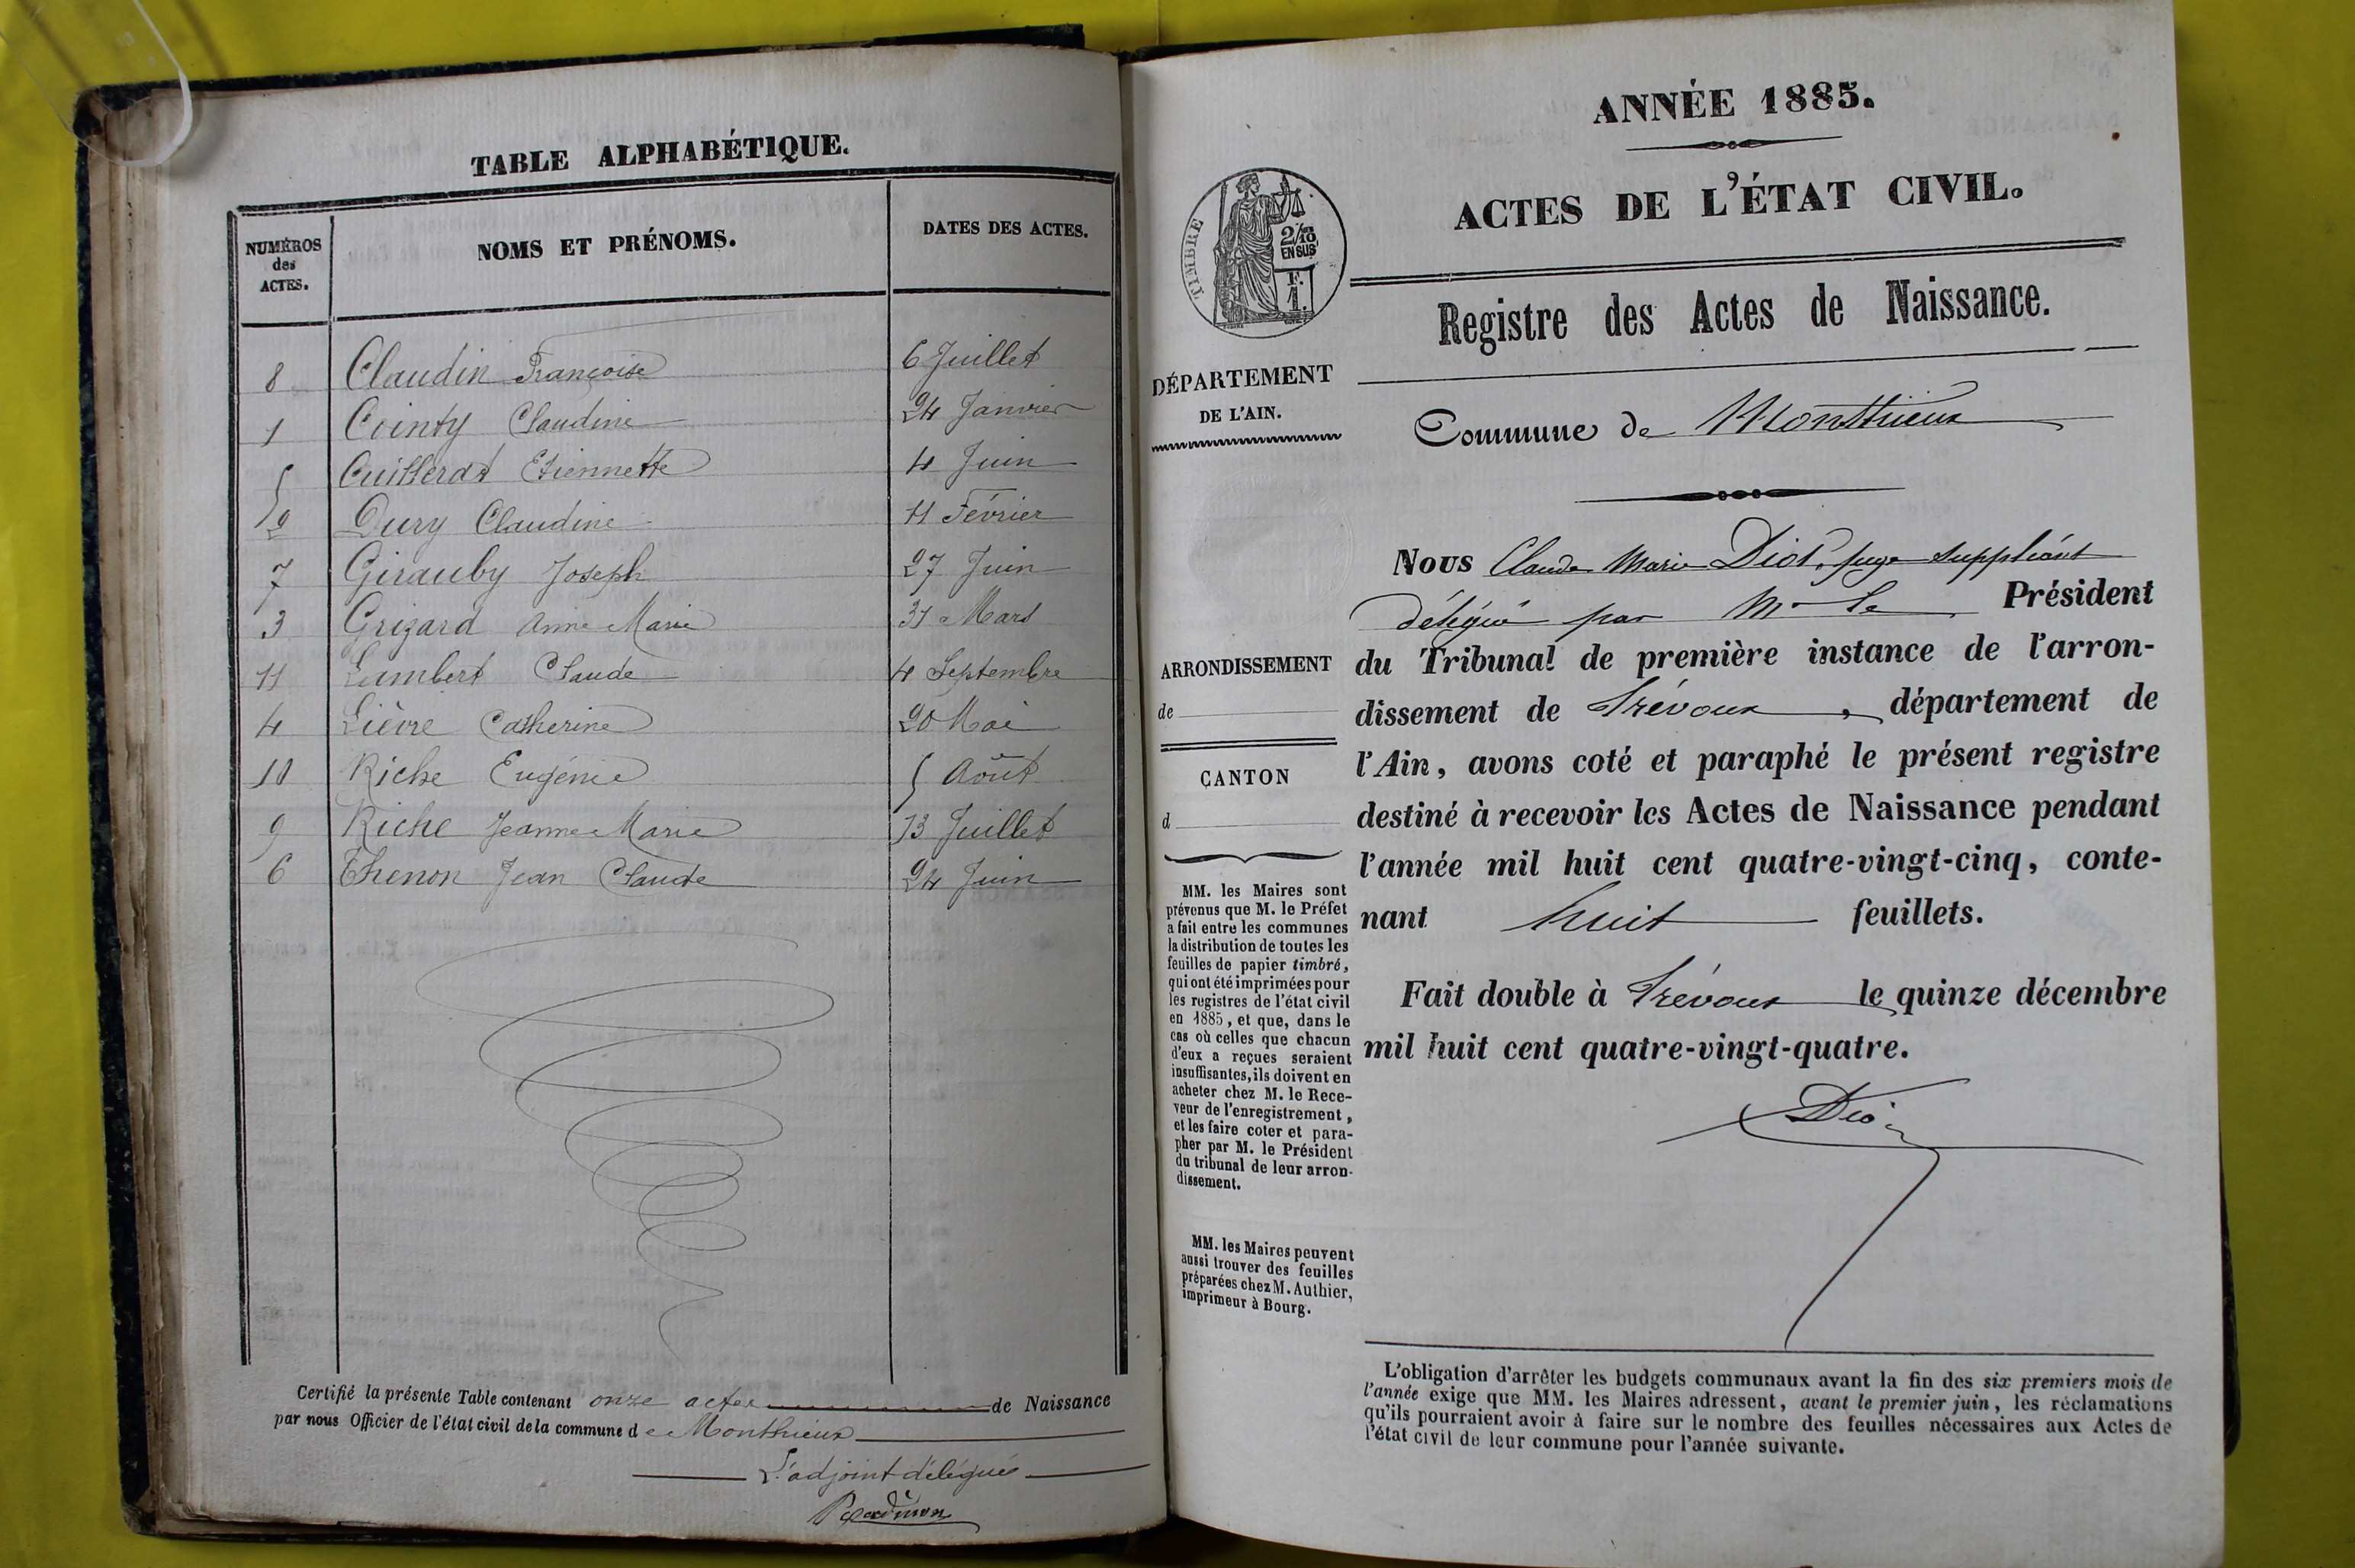 TABLE ALPHABÉTIQUE.
NUMÉROS des ACTES.
NOMS ET PRÉNOMS.
DATES DES ACTES.
8 Claudin Françoise 6 Juillet
1 Cointy Claudine 24 Janvier
5 Cuillerat Etiennette 4 Juin
2 Dury Claudine 11 Février
7 Girauby Joseph 27 Juin
3 Grizard Anne Marie 31 Mars
11 Lambert Claude 4 Septembre
4 Lièvre Catherine 20 Mai
10 Riche Eugénie 5 Août
9 Riche Jeanne Marie 13 Juillet
6 Thenon Jean Claude 24 Juin
Certifié la présente Table contenant onze actes de Naissance
par nous Officier de l'état civil de la commune de Monthieux
L'adjoint délégué
ANNÉE 1885.
ACTES DE L'ÉTAT CIVIL.
TIMBRE
2/10 EN SUS
F. 1.
Registre des Actes de Naissance.
DÉPARTEMENT
DE L'AIN.
Commune de Monthieux
Nous Claude Marie Diot, juge suppléant
délégué par Mr le Président
du Tribunal de première instance de l'arron-
dissement de Trévoux, département de
l'Ain, avons coté et paraphé le présent registre
destiné à recevoir les Actes de Naissance pendant
l'année mil huit cent quatre-vingt-cinq, conte-
nant huit feuillets.
Fait double à Trévoux le quinze décembre
mil huit cent quatre-vingt-quatre.
Diot
ARRONDISSEMENT
de
CANTON
d
MM. les Maires sont
prévenus que M. le Préfet
a fait entre les communes
la distribution de toutes les
feuilles de papier timbré,
qui ont été imprimées pour
les registres de l'état civil
en 1885, et que, dans le
cas où celles que chacun
d'eux a reçues seraient
insuffisantes, ils doivent en
acheter chez M. le Rece-
veur de l'enregistrement,
et les faire coter et para-
pher par M. le Président
du tribunal de leur arron-
dissement.
MM. les Maires peuvent
aussi trouver des feuilles
préparées chez M. Authier,
imprimeur à Bourg.
L'obligation d'arrêter les budgets communaux avant la fin des six premiers mois de
l'année exige que MM. les Maires adressent, avant le premier juin, les réclamations
qu'ils pourraient avoir à faire sur le nombre des feuilles nécessaires aux Actes de
l'état civil de leur commune pour l'année suivante.